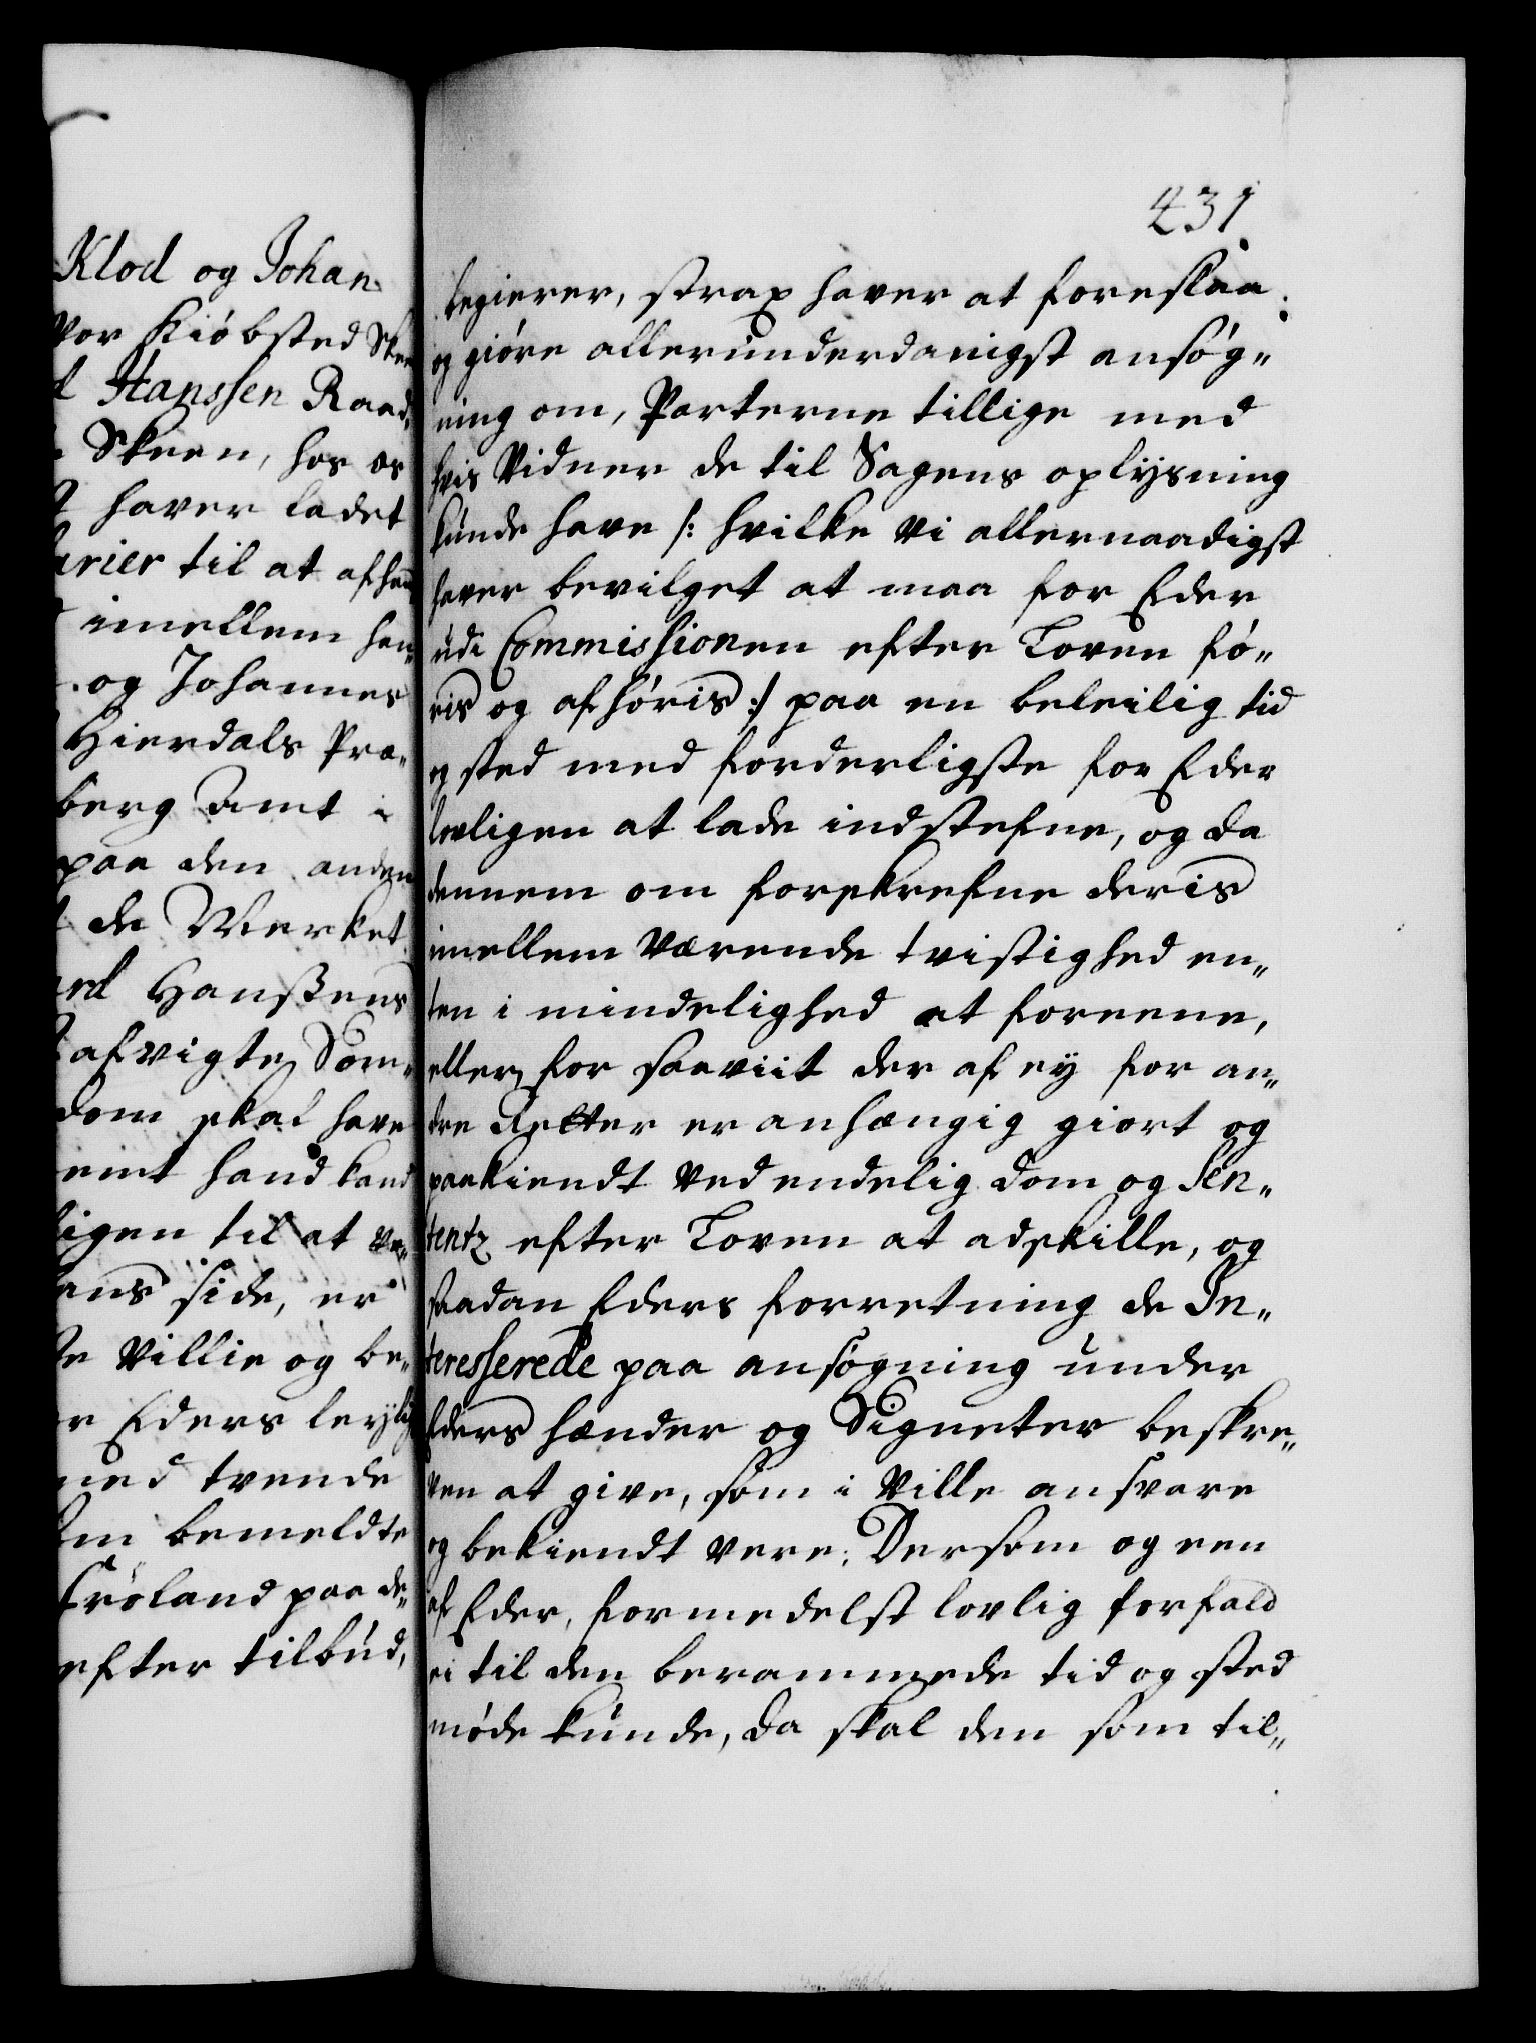 Klod og Johan
vor Kiøbsted Skee
Hanssen Raad-
Skeen, hos os
haver ladet
arier til at afhan
imellem han-
og Johannes
Hierdals Præ-
berg Amt i
paa den anden
de Merket
Hanssens
afvigte Som-
dom skal have
emt hand kand
ligen til at
ans side, er
Villie og be-
Eders leylig
med tvende
bemeldte
Trøland paa de-
efter tilbud,
431
begierer, strax haver at foreslaa
og giøre allerunderdanigst ansøg-
ning om, Parterne tillige med
hvis Vidner de til Sagens oplysning
kunde have /: hvilke vi allernaadigst
haver bevilget at maa for Eder
udi Commissionen efter Loven fø-
ris og afhøris :/ paa en beleilig tid
og sted med forderligste for Eder
lovligen at lade indstefne, og da
dennem om forskrefne deris
imellem Værende tvistighed en-
ten i mindelighed at foreene,
eller for saaviit der af ey for an-
dre Retter er anhængig giort og
paakiendt ved endelig dom og Sen-
tentz efter Loven at adskille, og
saadan Eders forretning de In-
teresserede paa ansøgning under
Eders hænder og Signeter beskre-
ven at give, som i Ville ansvare
og bekiendt vere. Dersom og een
af Eder, formedelst lovlig forfald
ei til den berammede tid og sted
møde kunde, da skal den som til-